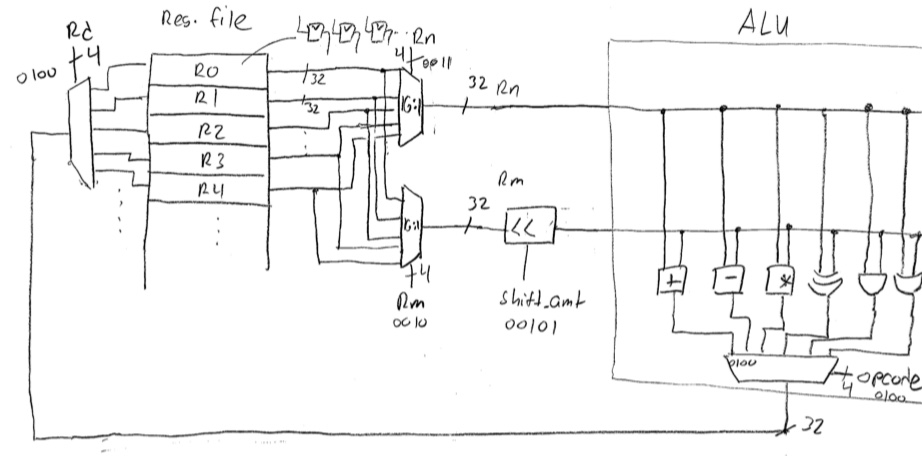 Reg. file
ALU
Rd
4
0100
Rn
4
0011
R0
R1
R2
R3
R4
32
32
16:1
16:1
32 Rn
32
Rm
<<
shift_amt
00101
4
Rm
0010
+
-
*
0100
4
opcode
0100
32